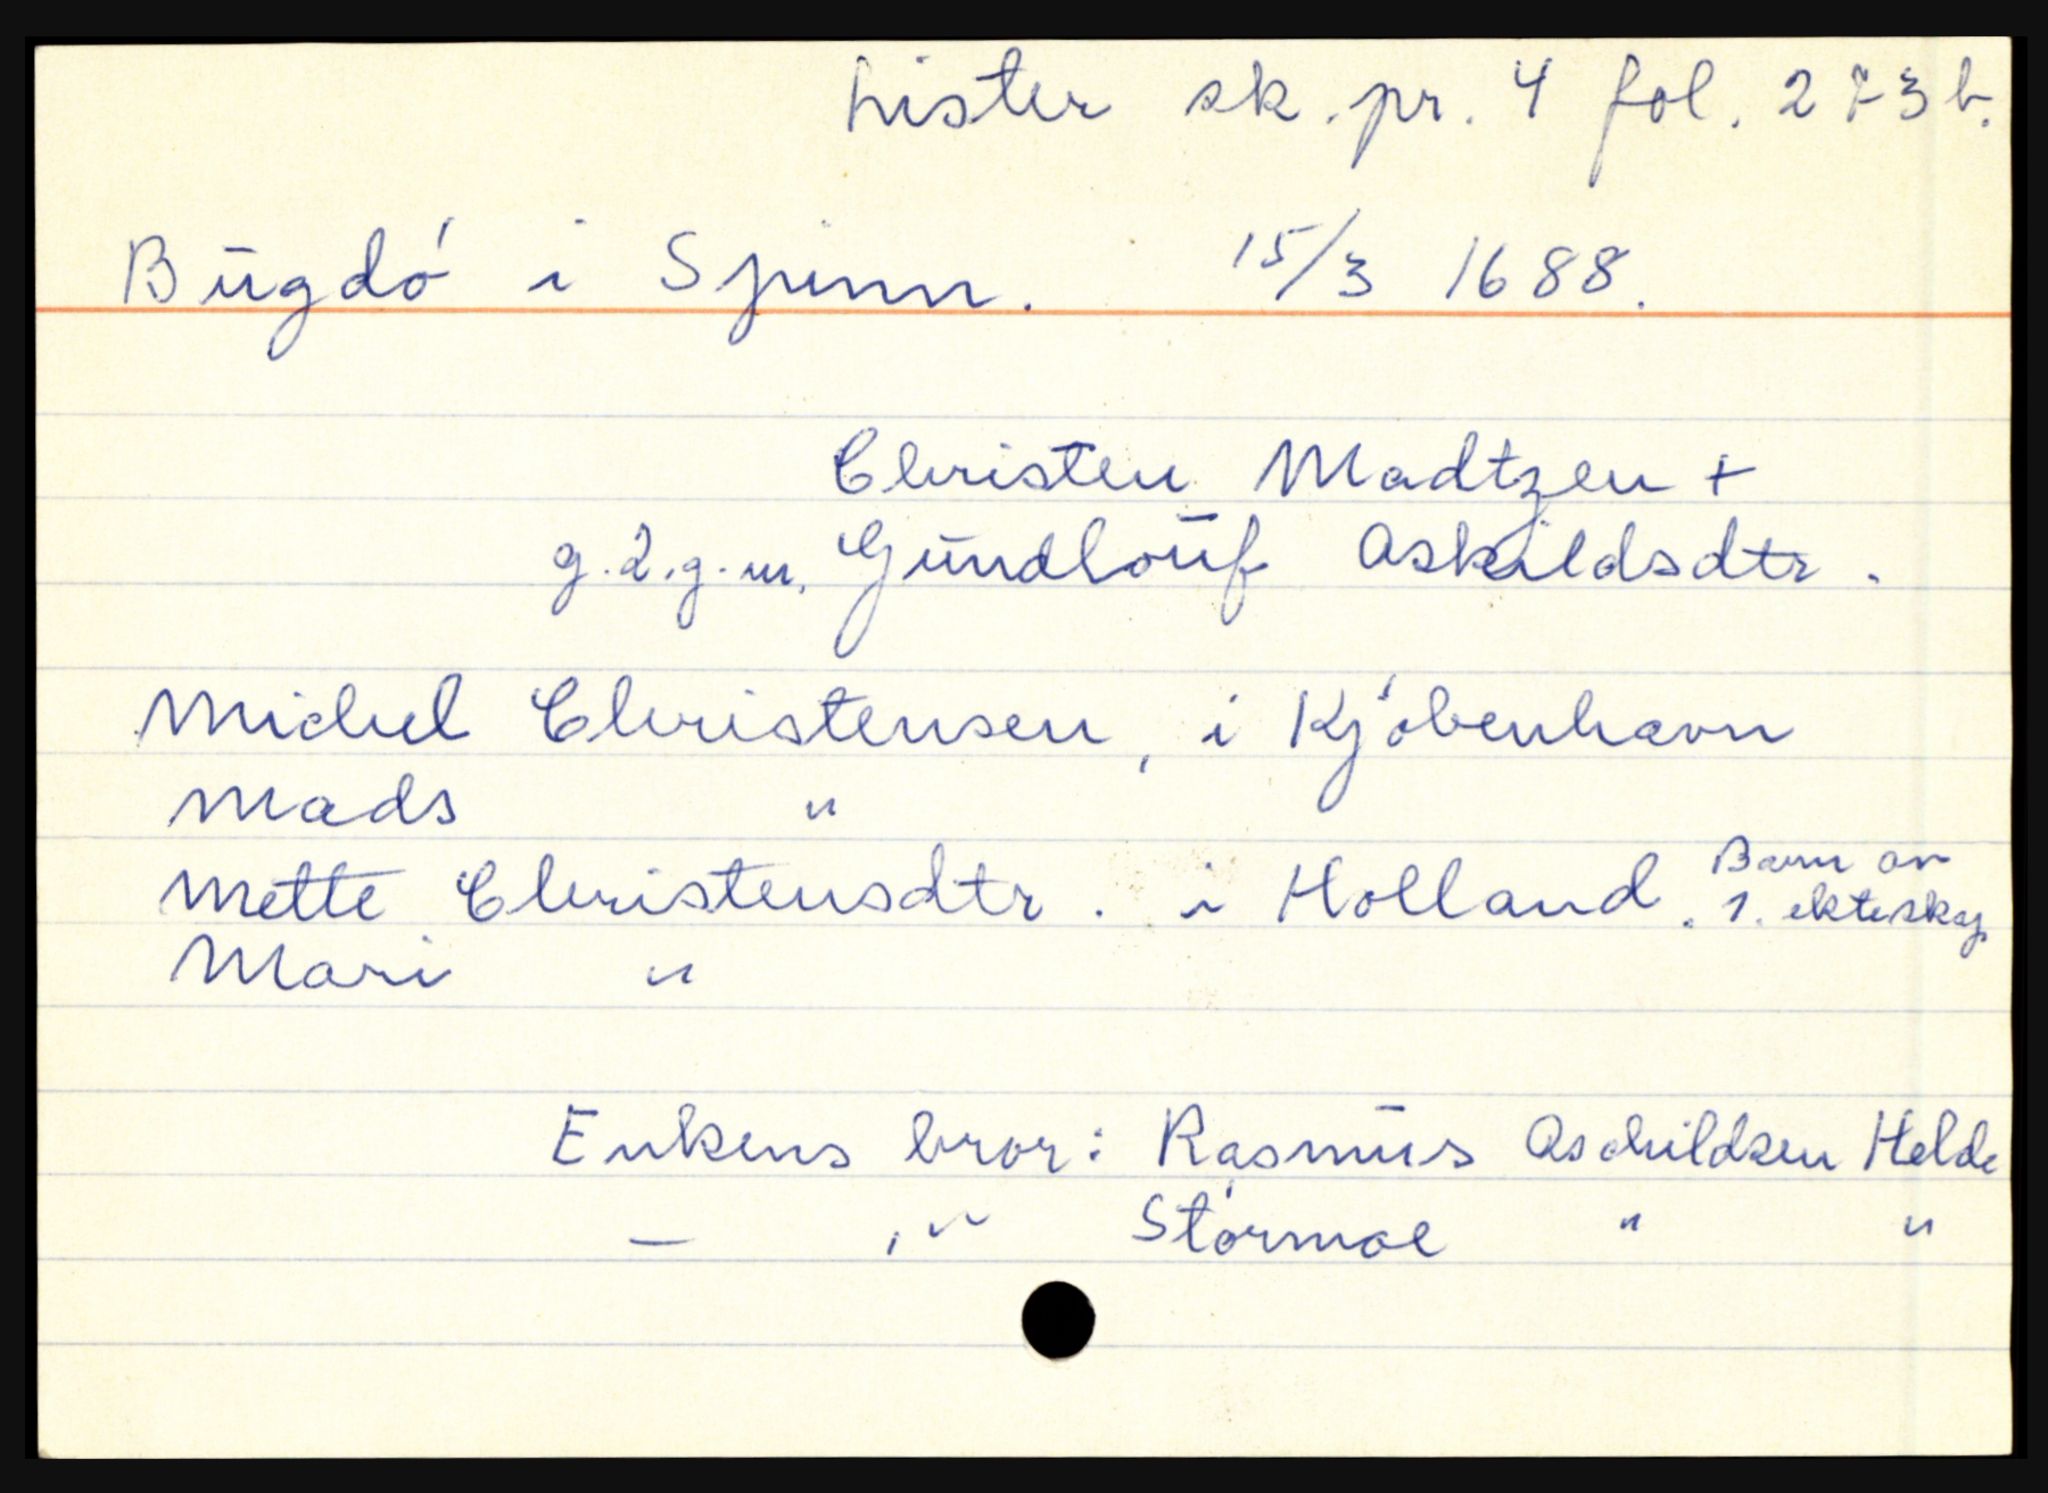 Lister sk. pr. 4 fol. 273 b.
Būgdó i Spinn. 15/3 1688.
Christen Madtzen +
g. 2. g. m. Gūndloūf Askildsdtr.
Michel Christensen, i Kjóbenhavn
Mads "
Mette Christensdtr. i Holland. Barn av
1. ekteskap
Mari "
Enkens bror: Rasmūs Aschildsen Helde
— , " Stórmoe " "